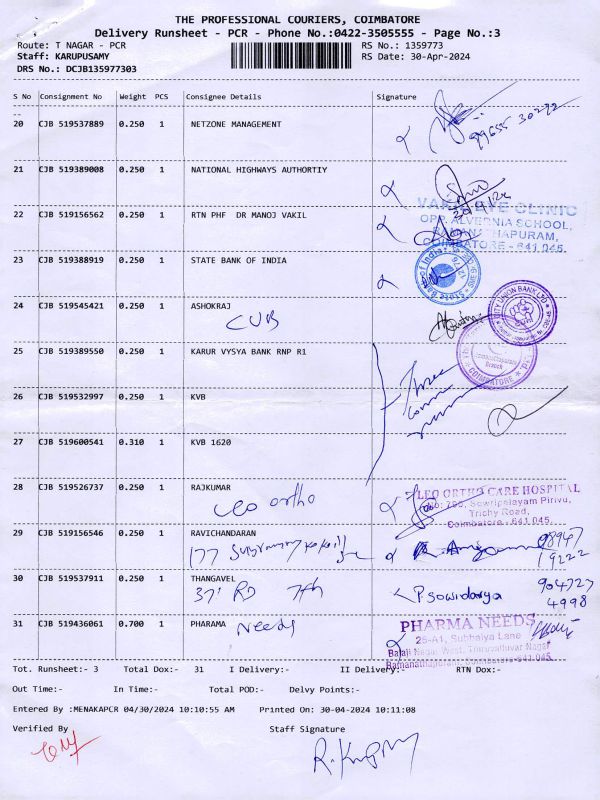 THE PROFESSIONAL COURIERS, COIMBATORE
Delivery Runsheet - PCR - Phone No.:0422-3505555 - Page No.:3
Route: T NAGAR - PCR RS No.: 1359773
Staff: KARUPUSAMY RS Date: 30-Apr-2024
DRS No.: DCJB135977303
S No Consignment No Weight PCS Consignee Details Signature
20 CJB 519537889 0.250 1 NETZONE MANAGEMENT
21 CJB 519389008 0.250 1 NATIONAL HIGHWAYS AUTHORTIY
VAK EYE CLINIC
22 CJB 519156562 0.250 1 RTN PHF DR MANOJ VAKIL
OPP. ALVERNIA SCHOOL,
RAMANATHAPURAM,
COIMBATORE - 641 045.
23 CJB 519388919 0.250 1 STATE BANK OF INDIA
State Bank of India
24 CJB 519545421 0.250 1 ASHOKRAJ
CUB
CITY UNION BANK LTD
25 CJB 519389550 0.250 1 KARUR VYSYA BANK RNP R1
Branch
COIMBATORE
Three
26 CJB 519532997 0.250 1 KVB
27 CJB 519600541 0.310 1 KVB 1620
28 CJB 519526737 0.250 1 RAJKUMAR
Leo ortho
LEO ORTHO CARE HOSPITAL
No: 795, Sowripalayam Pirivu,
Trichy Road,
Coimbatore - 641 045.
29 CJB 519156546 0.250 1 RAVICHANDARAN
177
98947
19222
30 CJB 519537911 0.250 1 THANGAVEL
37 RD 7th
P. Sowndarya
904727
4998
31 CJB 519436061 0.700 1 PHARAMA Needs
PHARMA NEEDS
25-A1, Subbaiya Lane
Balaji Nagar West, Thiruvalluvar Nagar
Ramanathapuram, Coimbatore-641 045
Tot. Runsheet:- 3 Total Dox:- 31 I Delivery:- II Delivery:- RTN Dox:-
Out Time:- In Time:- Total POD:- Delvy Points:-
Entered By :MENAKAPCR 04/30/2024 10:10:55 AM Printed On: 30-04-2024 10:11:08
Verified By Staff Signature